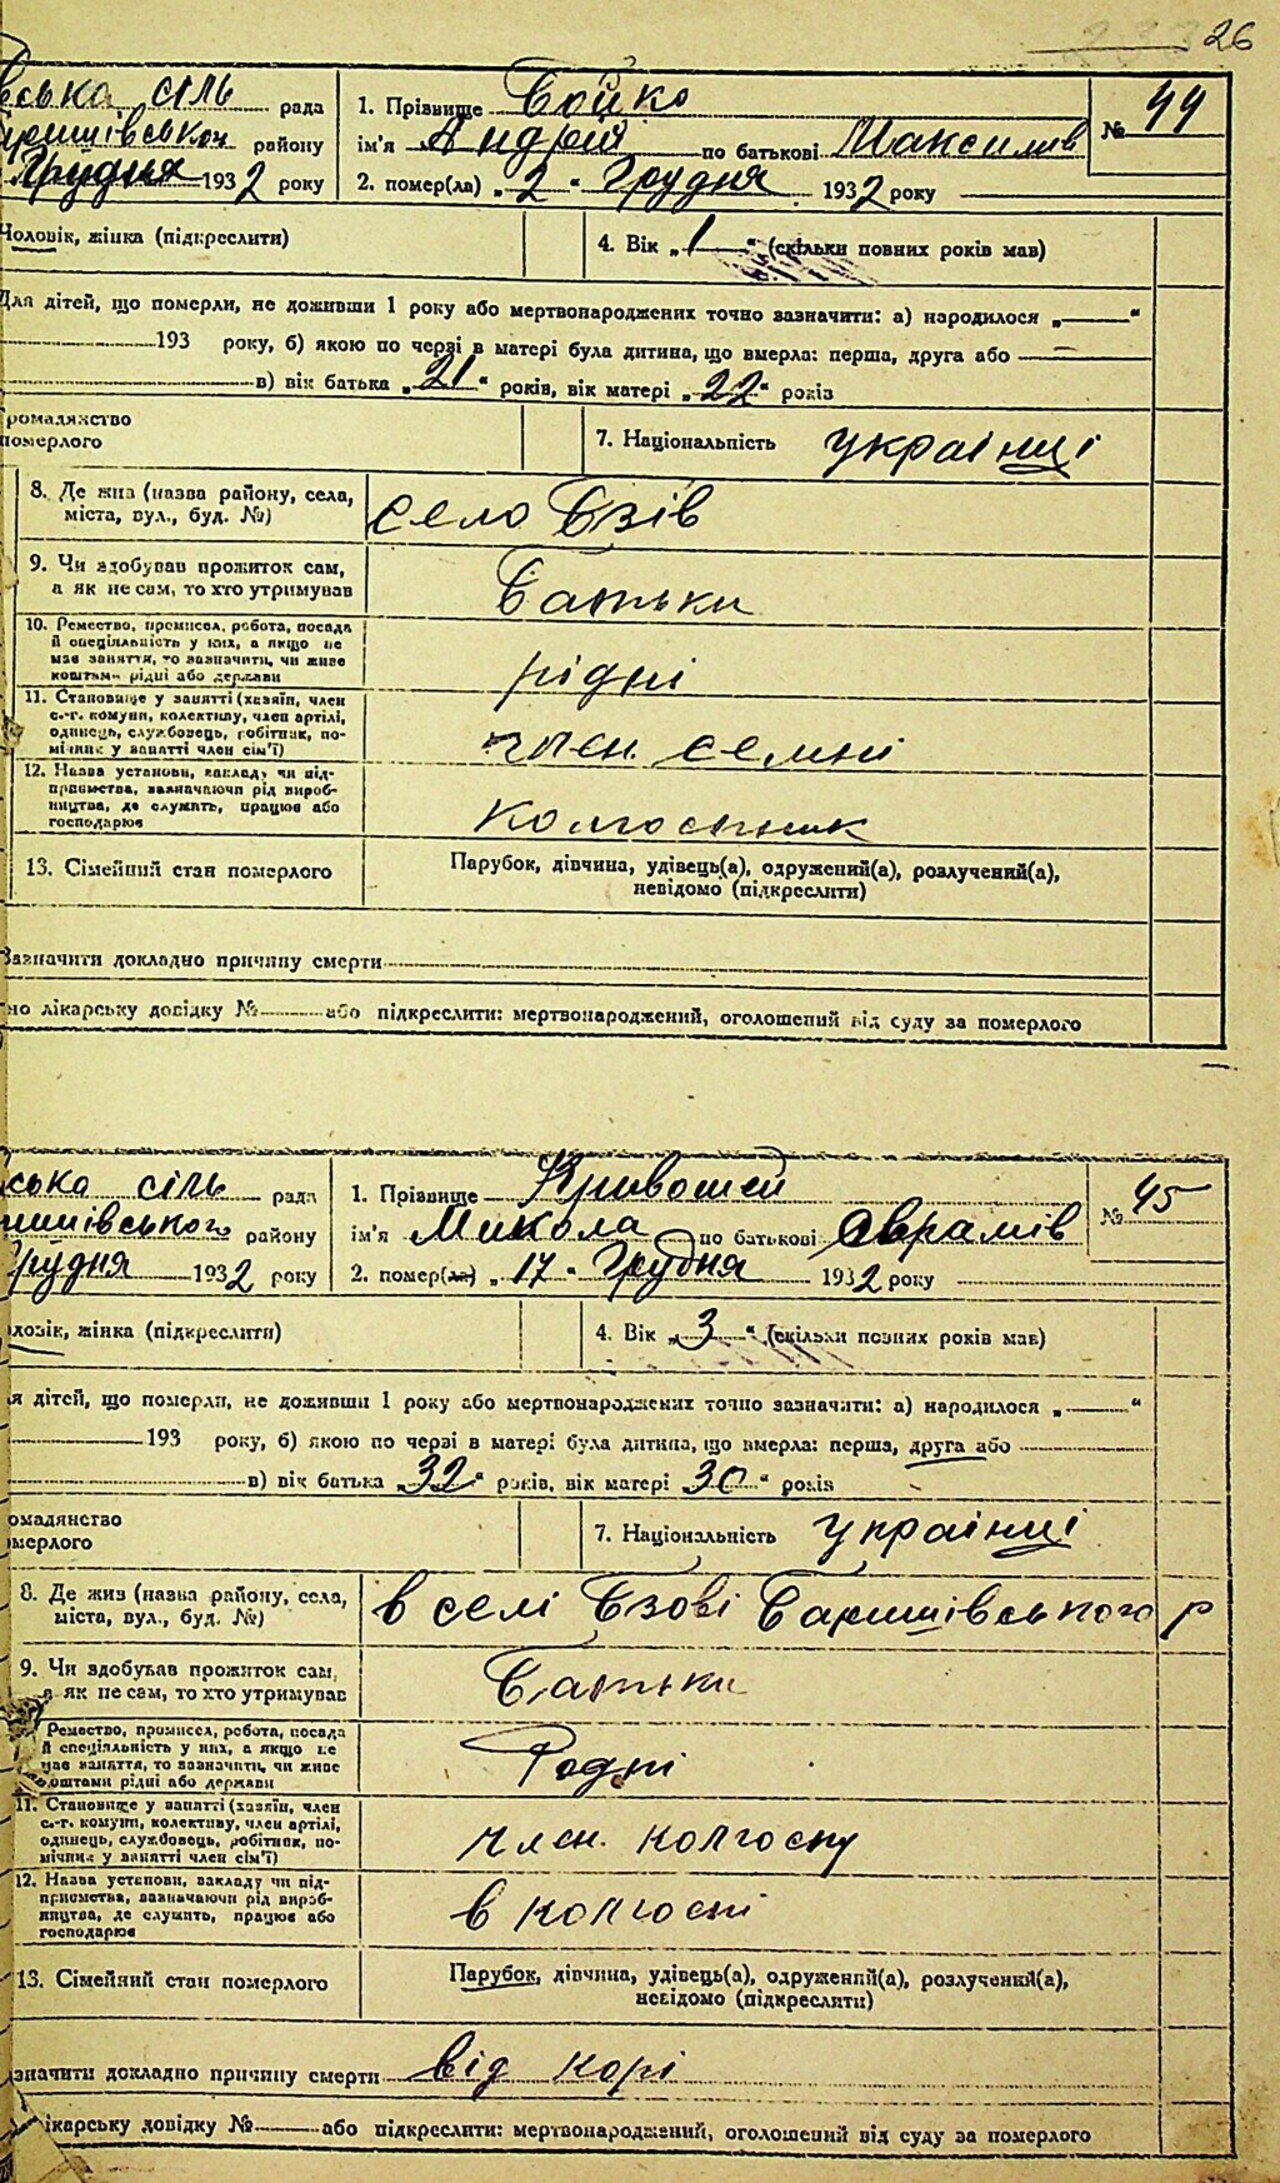 26
вська сіль рада
1. Прізвище Бойко
№ 44
ришівськом району
ім'я Андрій по батькові Максимів
Грудня 1932 року
2. помер(ла) „2“ Грудня 1932 року
Чоловік, жінка (підкреслити)
4. Вік „1“ (скільки повних років мав)
Для дітей, що померли, не доживши 1 року або мертвонароджених точно зазначити: а) народилося „ “
193 року, б) якою по черзі в матері була дитина, що вмерла: перша, друга або
в) вік батька „21“ років, вік матері „22“ років
громадянство
померлого
7. Національність українці
8. Де жив (назва району, села,
міста, вул., буд. №)
село Бзів
9. Чи здобував прожиток сам,
а як не сам, то хто утримував
Батьки
10. Ремество, промисел, робота, посада
й спеціяльність у них, а якщо не
має заняття, то зазначити, чи живе
коштами рідні або держави
рідні
11. Становище у занятті (хазяїн, член
с.-г. комуни, колективу, член артілі,
одинець, службовець, робітник, по-
мічник у занятті член сім'ї)
член семні
12. Назва установи, закладу чи під-
приємства, зазначаючи рід вироб-
ництва, де служить, працює або
господарює
колгоспник
13. Сімейний стан померлого
Парубок, дівчина, удівець(а), одружений(а), розлучений(а),
невідомо (підкреслити)
Зазначити докладно причину смерти
но лікарську довідку № або підкреслити: мертвонароджений, оголошений від суду за померлого
ська сіль рада
1. Прізвище Кривошей
№ 45
ишівського району
ім'я Микола по батькові Оврамів
Грудня 1932 року
2. помер(ла) „17“ Грудня 1932 року
ловік, жінка (підкреслити)
4. Вік „3“ (скільки повних років мав)
я дітей, що померли, не доживши 1 року або мертвонароджених точно зазначити: а) народилося „ “
193 року, б) якою по черзі в матері була дитина, що вмерла: перша, друга або
в) вік батька „32“ років, вік матері „30“ років
омадянство
мерлого
7. Національність українці
8. Де жив (назва району, села,
міста, вул., буд. №)
в селі Бзові Баришівського р
9. Чи здобував прожиток сам,
а як не сам, то хто утримував
Батьки
Ремество, промисел, робота, посада
й спеціяльність у них, а якщо не
має заняття, то зазначити, чи живе
коштами рідні або держави
Родні
11. Становище у занятті (хазяїн, член
с.-г. комуни, колективу, член артілі,
одинець, службовець, робітник, по-
мічник у занятті член сім'ї)
член. колгоспу
12. Назва установи, закладу чи під-
приємства, зазначаючи рід вироб-
ництва, де служить, працює або
господарює
в колгоспі
13. Сімейний стан померлого
Парубок, дівчина, удівець(а), одружений(а), розлучений(а),
невідомо (підкреслити)
значити докладно причину смерти від корі
ікарську довідку № або підкреслити: мертвонароджений, оголошений від суду за померлого